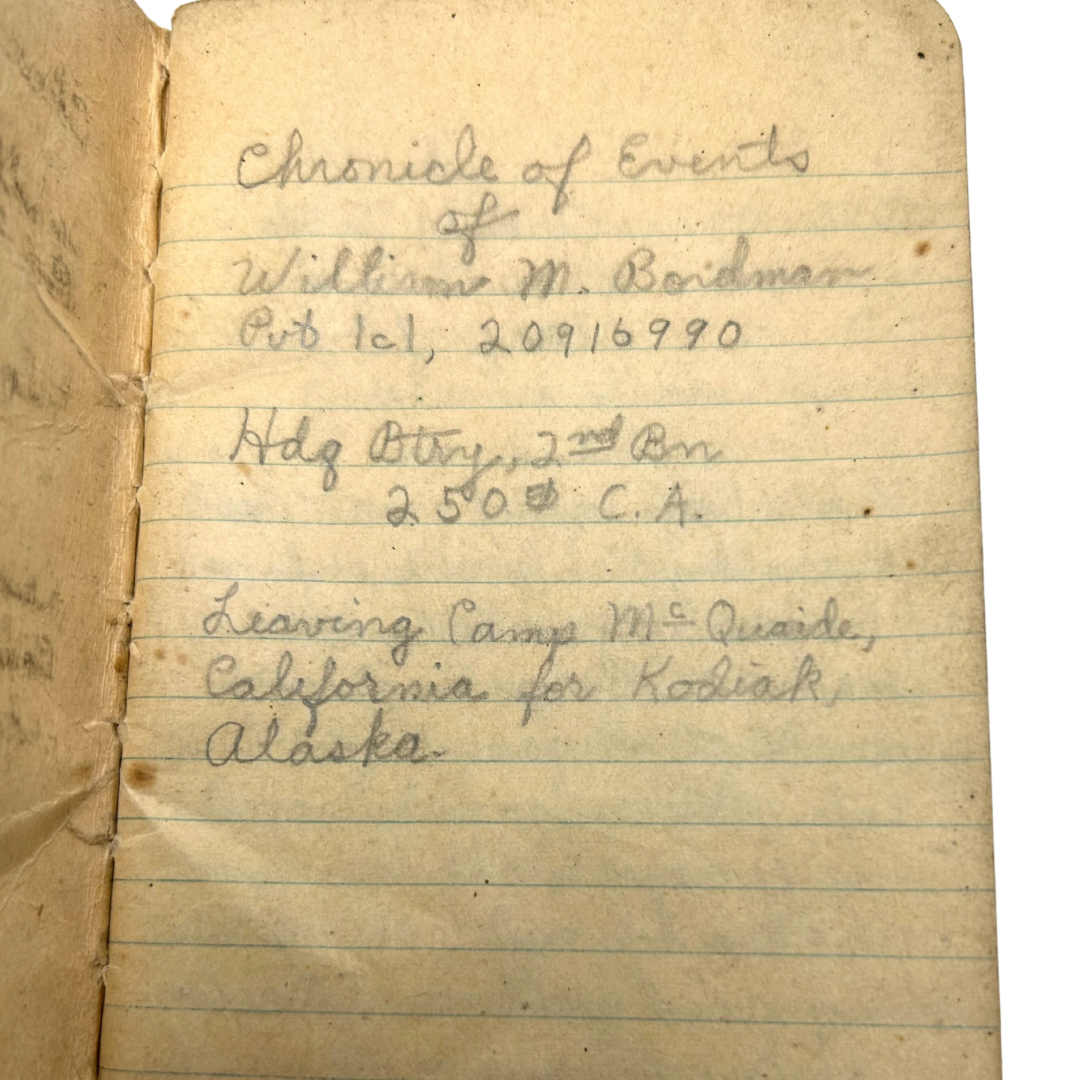 Chronicle of Events
of
William M. Bordman
Pvt 1cl, 20916990
Hdq Btry, 2nd Bn
250th C. A.
Leaving Camp Mc Quaide,
California for Kodiak,
Alaska.